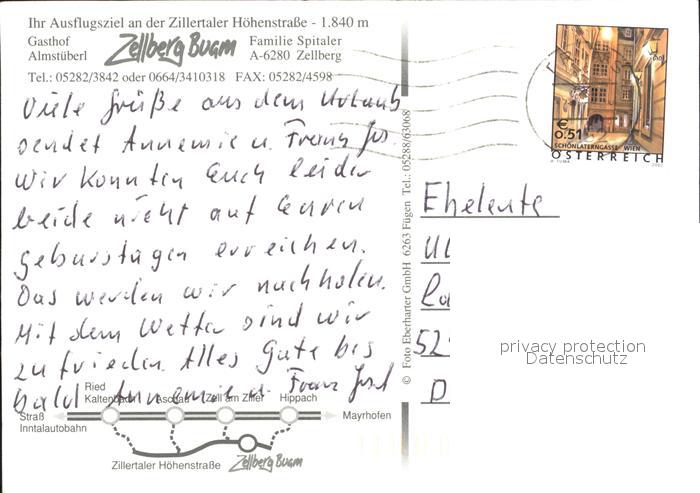 Ihr Ausflugsziel an der Zillertaler Höhenstraße - 1.840 m
Gasthof Almstüberl
Zellberg Buam
Familie Spitaler
A-6280 Zellberg
Tel.: 05282/3842 oder 0664/3410318 FAX: 05282/4598
Viele Grüße aus dem Urlaub
sendet Annemie u. Franz Jos.
Wir konnten Euch leider
beide nicht auf Euren
Geburstagen erreichen.
Das werden wir nachholen.
Mit dem Wetter sind wir
zufrieden. Alles Gute bis
bald Annemie u. Franz Josef
Ried
Kaltenbach
Aschau
Zell am Ziller
Hippach
Straß
Inntalautobahn
Mayrhofen
Zillertaler Höhenstraße
Zellberg Buam
© Foto Eberharter GmbH 6263 Fügen Tel.: 05288/63068
€ 0.51
SCHÖNLATERNGASSE, WIEN
ÖSTERREICH
2002
Eheleute
52
D
privacy protection
Datenschutz